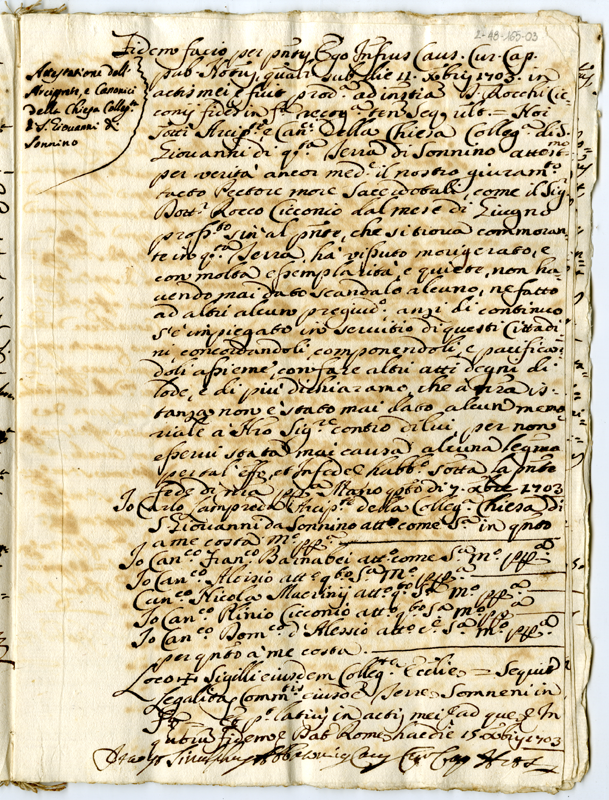 2-48-165-03
Fidem facio per pntes Ego Infrus Caus. Cur. Cap.
pub. Notus, qual. sub die 11. Xbris 1703. in
actis mei fuit prod. ad instia D. Rocchi Cic
conij fides in f. recog. ten. seq. vilt = Noi
Attestatione dell'
Arciprete, e Canonici
della Chiesa Colleg.ta
di S. Giovanni di
Sonnino
Sotti Arcip.e e Can.ci della Chiesa Colleg.ta di S.
Giovanni di q.ta Terra di Sonnino attest.mo
per verità ancor med.e il nostro giuram.to
tacto Pectore more Sacerdotali come il Sig.
Dott.r Rocco Cicconio dal mese di Giugno
pross.o sin' al pnte, che si trova commoran
te in q.ta Terra, hà vissuto morigerato, e
con molta esemplarità, e quiete, non ha
vendo mai dato scandalo alcuno, ne fatto
ad altri alcun pregiud.o anzi di continuo
s'è impiegato in servitio di questi Cittadi
ni concordandoli, componendoli, e pacifican
doli assieme, con fare altri atti degni di
lode, e di più dichiaramo, che à nra is
tanza non è stato mai dato alcun memo
riale à Nro Sig.re contro di lui, per non
esservi stata mai causa alcuna legma
per tal' eff.o, et in fede habb.o sotta la pnte
fede di nra pp.a Mano q.to di 7. Xbre 1703
Io Carlo Lampredi Arcip.e della Colleg.ta Chiesa di
S. Giovanni da Sonnino att.o come s.a in qnto
à me costa m.o pp.a
Io Can.co Fran.co Barnabei att.o come s.a m.o pp.a
Io Can.co Aloisio att.o q.to s.a m.o pp.a
Can.co Nicola att.o q.to s.a m.o pp.a
Io Can.co Plinio Cicconio att.o q.to s.a m.o pp.a
Io Can.co Dom.co d'Alessio att.o c.e s.a m.o pp.a
per qnto à me costa
Loco + Sigilli eiusdem Colleg.ta Ecclie = Sequit
Legalitas Comm.tis eiusd. Terre Sonneni in
f. p. latius in actis mei ad que
fidem Dat. Rome hac die 15 Xbris 1703